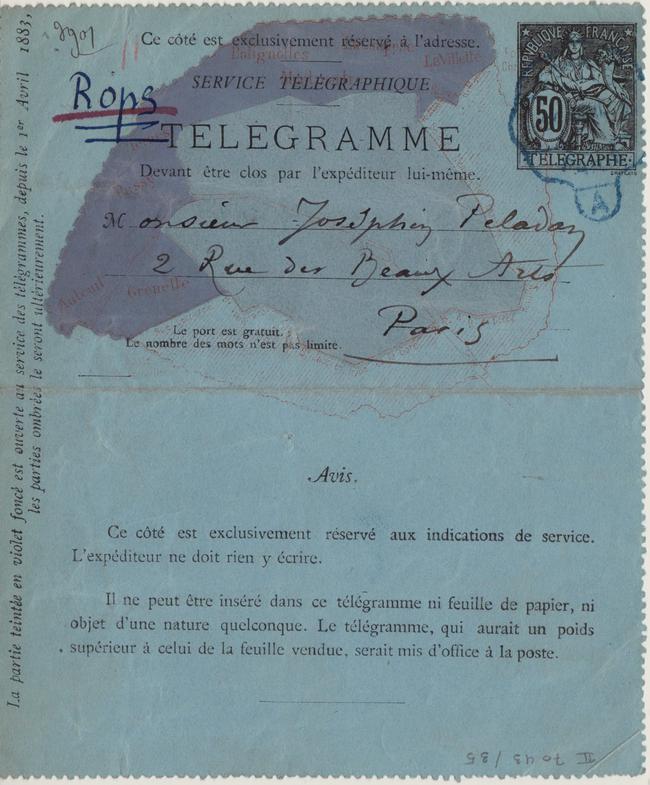 3901
Ce côté est exclusivement réservé à l'adresse.
Rops
SERVICE TÉLÉGRAPHIQUE
TÉLÉGRAMME
Devant être clos par l'expéditeur lui-même.
RÉPUBLIQUE FRANÇAISE
50
TÉLÉGRAPHE
A
Batignolles
La Villette
Monsieur Joséphin Peladan
2 Rue des Beaux Arts
Paris
Auteuil
Grenelle
Le port est gratuit.
Le nombre des mots n'est pas limite.
La partie teintée en violet foncé est ouverte au service des télégrammes, depuis le 1er Avril 1883,
les parties ombrées le seront ultérieurement.
Avis.
Ce côté est exclusivement réservé aux indications de service.
L'expéditeur ne doit rien y écrire.
Il ne peut être inséré dans ce télégramme ni feuille de papier, ni
objet d'une nature quelconque. Le télégramme, qui aurait un poids
supérieur à celui de la feuille vendue, serait mis d'office à la poste.
II 7043/35